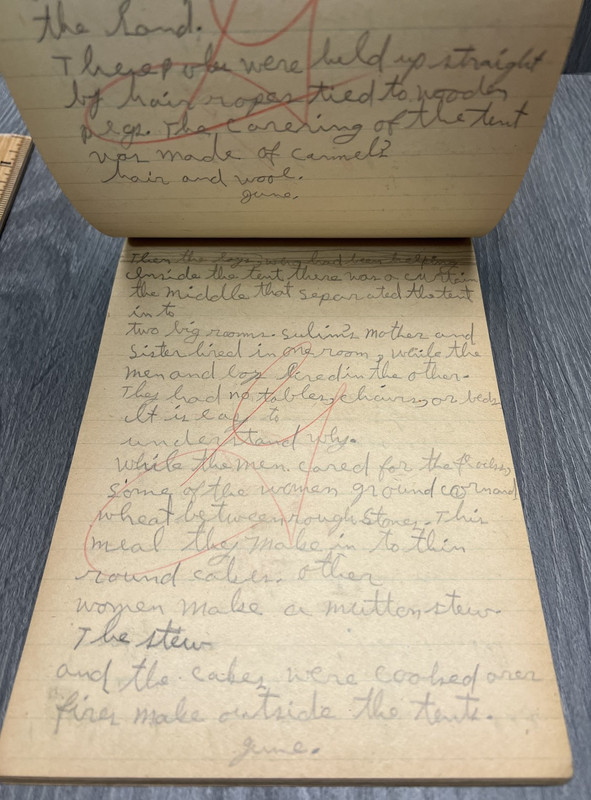 the sand.
These poles were held up straight
by hair ropes tied to wooden
pegs. The covering of the tent
was made of carmel's
hair and wool.
June.
Then the boys who had been helping
Inside the tent there was a curtain
the middle that separated the tent
in to
two big rooms. Sulim's mother and
sister lived in one room, while the
men and boy lived in the other.
They had no tables, chairs, or beds
It is easy to
understand why.
while the men cared for the flocks,
some of the women ground corn and
wheat between rough stones. This
meal they make in to thin
round cakes. Other
women make a mutton stew.
The stew
and the cakes were cooked over
fires make outside the tents.
June.